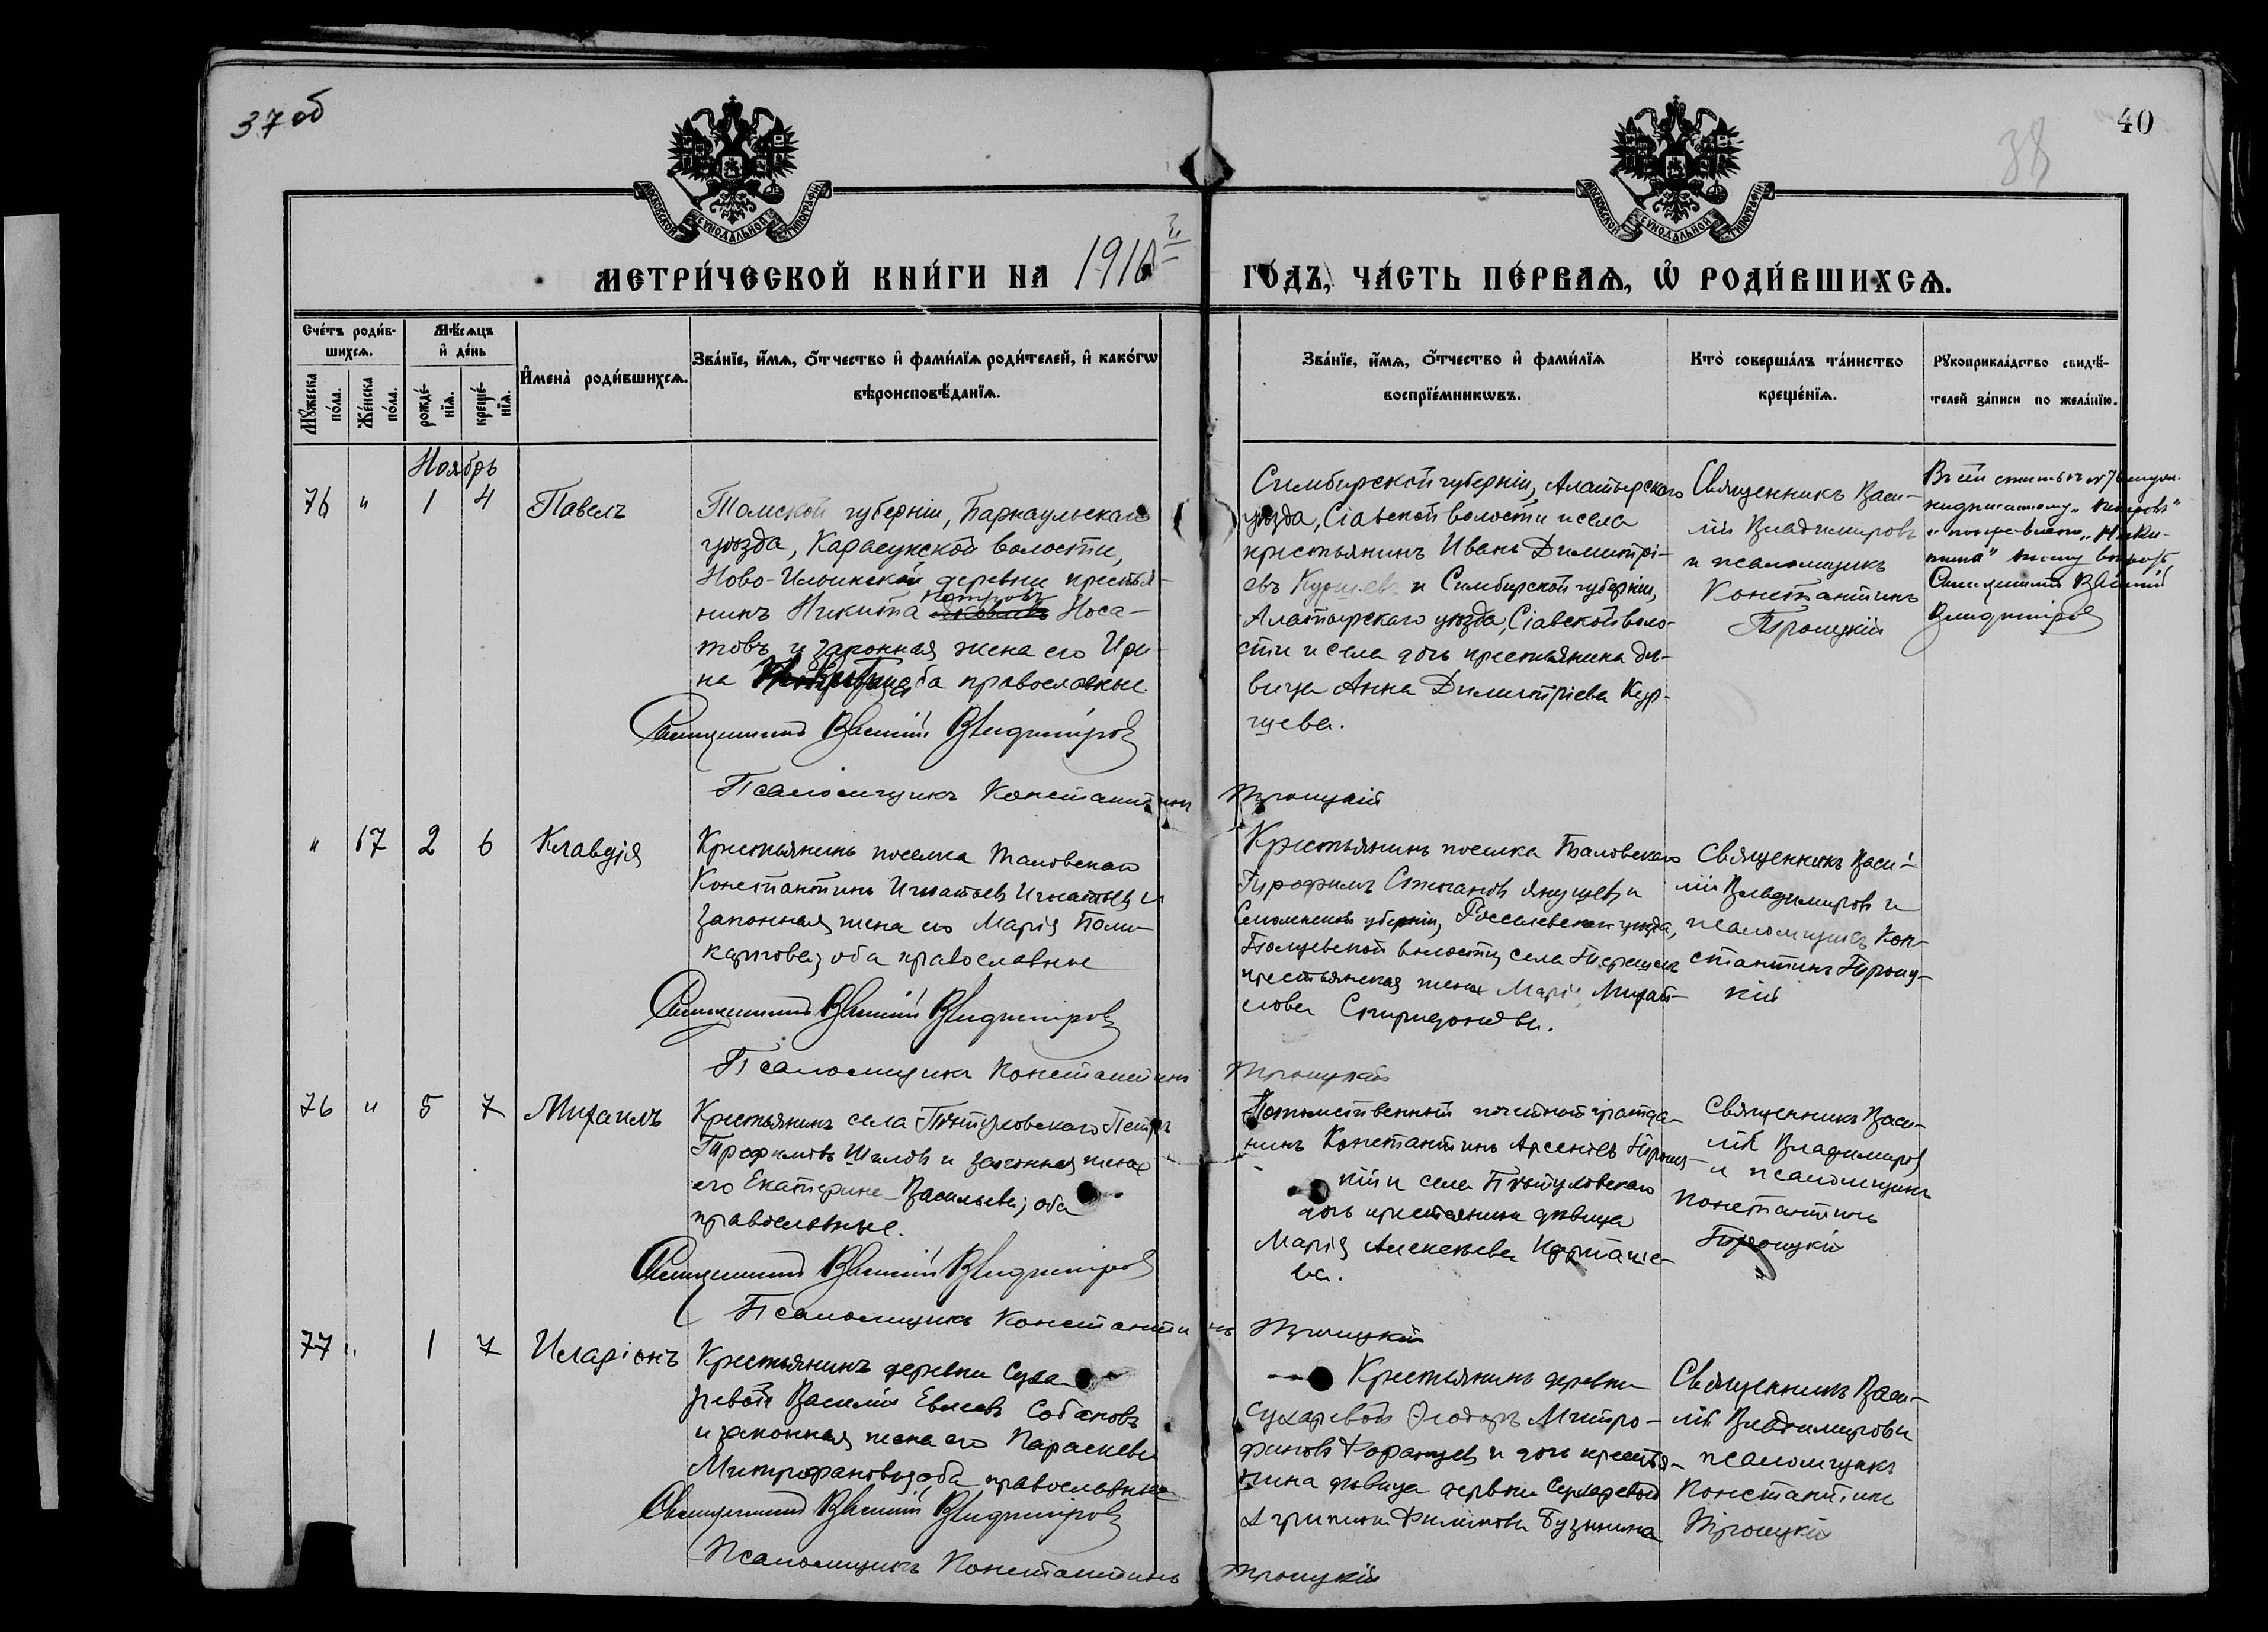 37 об
40
38
МОСКОВСКОЙ СѴНОДАЛЬНОЙ ТИПОГРАФІИ
МОСКОВСКОЙ СѴНОДАЛЬНОЙ ТИПОГРАФІИ
МЕТРИ́ЧЕСКОЙ КНИ́ГИ НА 1910й
ГО́ДЪ, ЧА́СТЬ ПЕ́РВАѦ, Ѡ҆ РОДИ́ВШИХСѦ.
Сче́тъ роди́в-
шихсѧ.
Мѣ́сѧцъ
и҆ де́нь
Мꙋ́жеска по́ла.
Же́нска по́ла.
рожде́-
нїѧ.
креще́-
нїѧ.
И҆мена̀ роди́вшихсѧ.
Зва́нїе, и҆́мѧ, ѻ҆́тчество и҆ фами́лїѧ роди́телей, и҆ како́гѡ
вѣроисповѣ́данїѧ.
Зва́нїе, и҆́мѧ, ѻ҆́тчество и҆ фами́лїѧ
воспрїе́мникѡвъ.
Кто̀ соверша́лъ та́инство
креще́нїѧ.
Рꙋкоприкла́дство свидѣ́-
телей за́писи по жела́нїю.
Ноябрь
76 " 1 4 Павелъ
Томской губерніи, Барнаульскаго
уѣзда, Карасукской волости,
Ново-Ильинской деревни крестья-
нинъ Никита Петровъ Носа-
товъ и законная жена его Ири-
на оба православные.
Священникъ Василій Владиміровъ
Псаломщикъ Константинъ Троицкій
Симбирской губерніи, Алатырскаго
уѣзда, Сіавской волости и села
крестьянинъ Иванъ Димитрі-
евъ и Симбирской губерніи,
Алатырскаго уѣзда, Сіавской воло-
сти и села дочь крестьянина дѣ-
вица Анна Димитріева Кур-
щева.
Священникъ Васи-
лій Владиміровъ
и псаломщикъ
Константинъ
Троицкій
Въ сей статьѣ № 76
вѣрить
Священникъ Василій
Владиміровъ
" 67 2 6 Клавдія
Крестьянинъ поселка Таловскаго
Константинъ Игнатьевъ Игнатьевъ и
законная жена его Марія Поли-
карпова, оба православные
Священникъ Василій Владиміровъ
Псаломщикъ Константинъ Троицкій
Крестьянинъ поселка Таловскаго
Трофимъ Степановъ Янущевъ и
Смоленской губерніи, Рославльскаго уѣзда,
волости, села
крестьянская жена Марія Михай-
лова Спиридонова.
Священникъ Васи-
лій Владиміровъ и
псаломщикъ Кон-
стантинъ Троиц-
кій
76 " 5 7 Михаилъ
Крестьянинъ села Петръ
Трофимовъ Шиловъ и законная жена
его Екатерина Васильева; оба
православные.
Священникъ Василій Владиміровъ
Псаломщикъ Константинъ Троицкій
Потомственный почетный гражда-
нинъ Константинъ Арсеньевъ Троиц-
кій и села
дочь крестьянина дѣвица
Марія Алексѣева
ва.
Священникъ Васи-
лій Владиміровъ
и псаломщикъ
Константинъ
Троицкій
77 " 1 7 Иларіонъ
Крестьянинъ деревни Суха-
ревой Василій Евсеевъ Собановъ
и законная жена его Параскева
Митрофанова, оба православные
Священникъ Василій Владиміровъ
Псаломщикъ Константинъ Троицкій
Крестьянинъ деревни
Сухаревой Ѳеодоръ Митро-
фановъ и дочь крестья-
нина дѣвица деревни Сухаревой
Агрипина Филипова Бузынина
Священникъ Васи-
лій Владиміровъ и
псаломщикъ
Константинъ
Троицкій